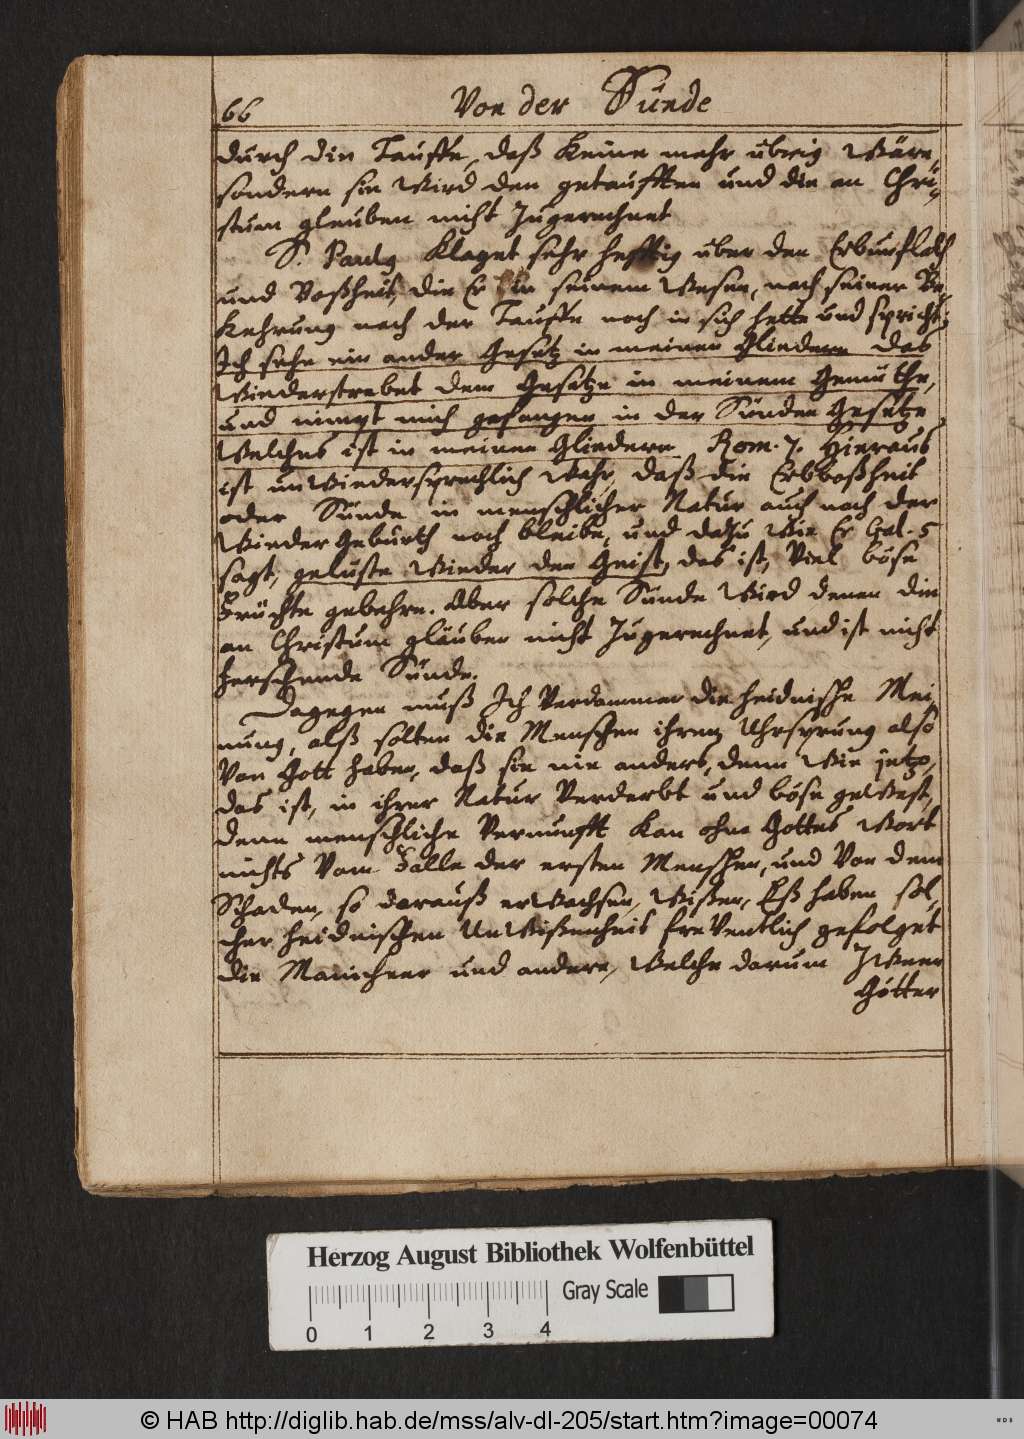 66 Von der Sünde
durch die Tauffe, daß keine mehr übrig wäre,
sondern sie wird den getaufften und die an Chri-
stum gleuben nicht zugerechnet
S. Paulus klaget sehr hefftig über den
und Boßheit, die Er in seinem Wesen, nach seiner Be-
kehrung nach der Tauffe noch in sich hette und spricht:
Ich sehe ein ander Gesetz in meinen Gliedern das
wiederstrebet dem Gesetze in meinem Gemüthe,
und nimpt mich gefangen in der Sünden Gesetze
welches ist in meinen Gliedern Rom. 7. Hieraus
ist unwiedersprechlich wahr, daß die Erbboßheit
oder Sünde in menschlicher Natur auch nach der
Wieder Geburth noch bleibe, und dazu wie Er Gal. 5
sagt, geluste wieder den Geist, das ist, viel böse
Früchte gebehre. Aber solche Sünde wird denen die
an Christum gläuben nicht zugerechnet, und ist nicht
herschende Sünde.
Dagegen muß Ich verdammen die heidnische Mei
nung, alß solten die Menschen ihren Uhrsprung also
von Gott haben, daß sie nie anders, denn wie jetzo,
das ist, in ihrer Natur verderbt und böse gewest,
denn menschliche Vernunfft kan ohne Gottes Wort
nichts vom Falle der ersten Menschen, und von dem
Schaden, so darauß erwachsen, wißen, Eß haben sol-
cher heidnischen Unwißenheit freventlich gefolget
die Manicheer und andere, welche darum zween
Götter
Herzog August Bibliothek Wolfenbüttel
Gray Scale
0 1 2 3 4
© HAB http://diglib.hab.de/mss/alv-dl-205/start.htm?image=00074